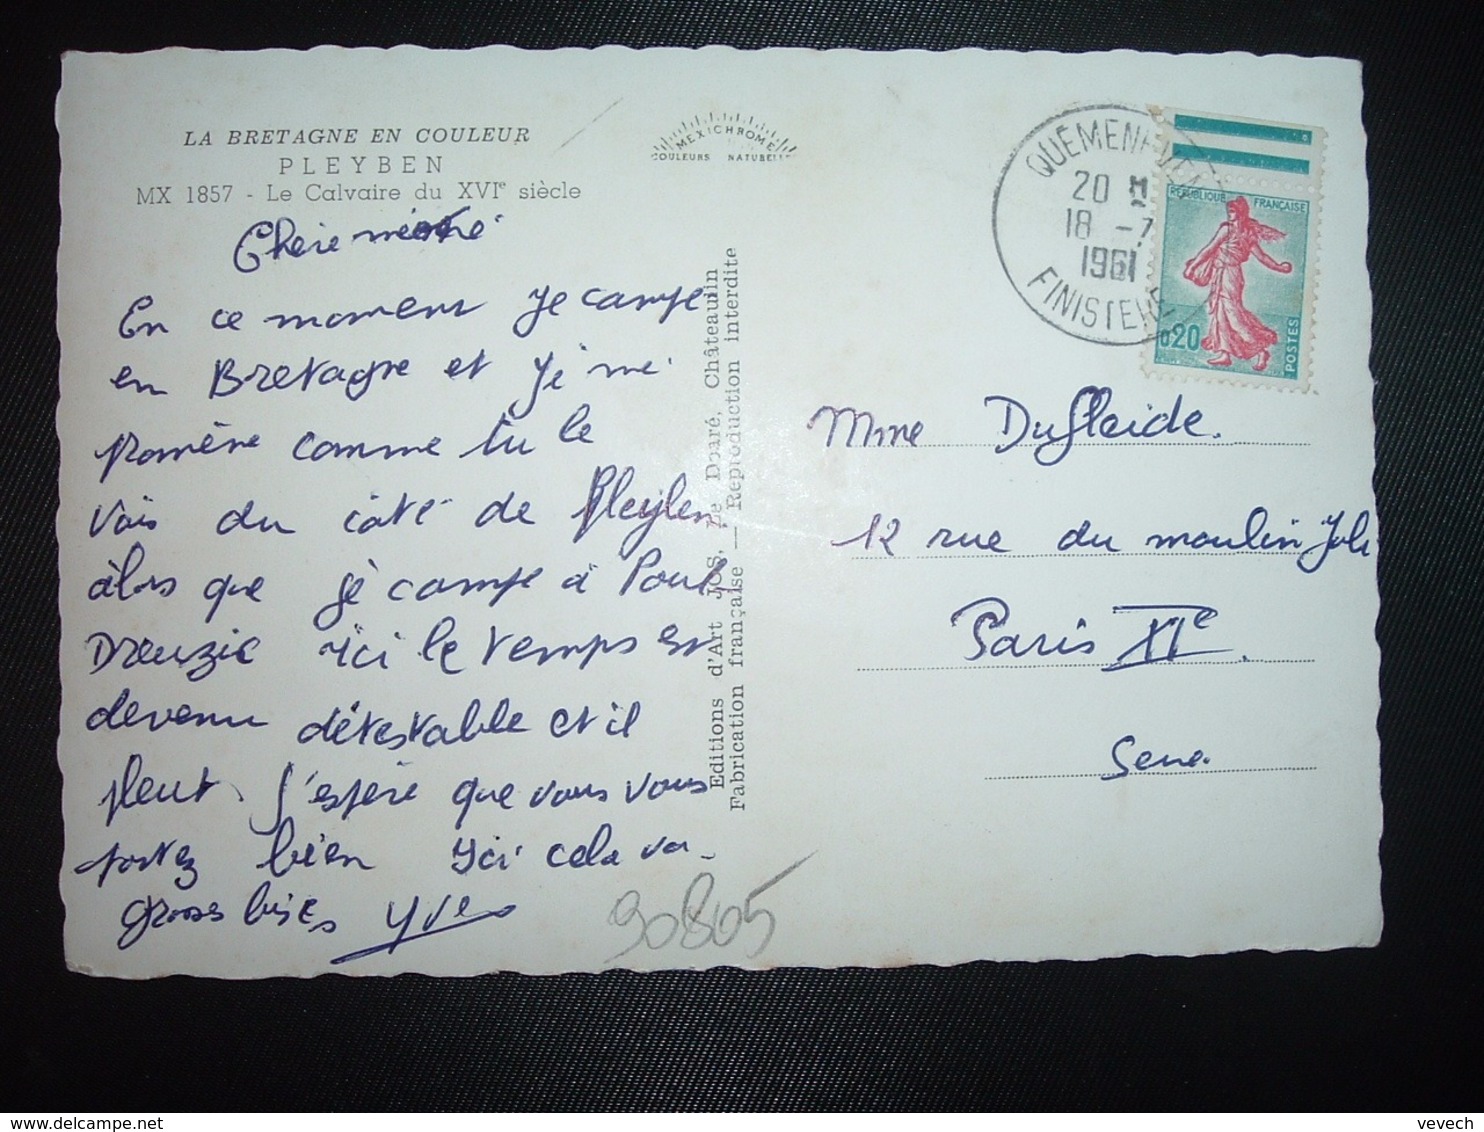 LA BRETAGNE EN COULEUR
PLEYBEN
MX 1857 - Le Calvaire du XVIe siècle
MEXICHROME
COULEURS NATURELLES
Chère mémé
En ce moment Je campe
en Bretagne et Je me
promène comme tu le
vois du côté de Pleyben
alors que je campe à Pont
Dreuzic Ici le temps est
devenu détestable et il
pleut. J'espère que vous vous
portez bien Ici cela va.
grosses bises Yves
Editions d'Art JOS, Le Doaré, Châteaulin
Fabrication française — Reproduction interdite
QUEMENEVEN
20 H
18 -7
1961
FINISTERE
REPUBLIQUE FRANÇAISE
0,20
POSTES
Mme Dufleide.
12 rue du moulin Joli
Paris XIe
Sene.
90805
vevech